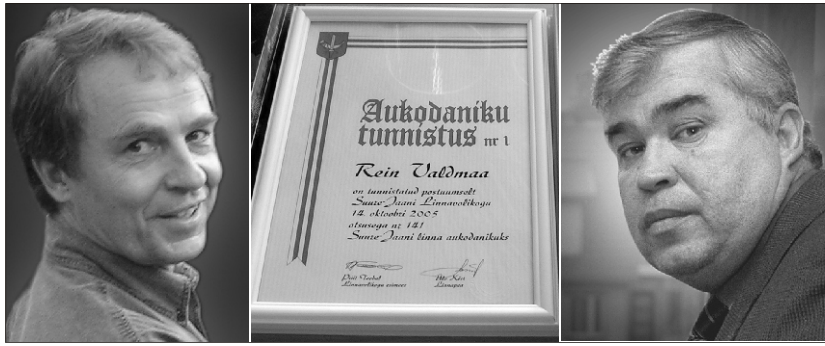 Aukodaniku
tunnistus nr 1
Rein Valdmaa
on tunnistatud postuumselt
Suure-Jaani Linnavolikogu
14. oktoobri 2005
otsusega nr 141
Suure-Jaani linna aukodanikuks
Linnavolikogu esimees
Linnapea